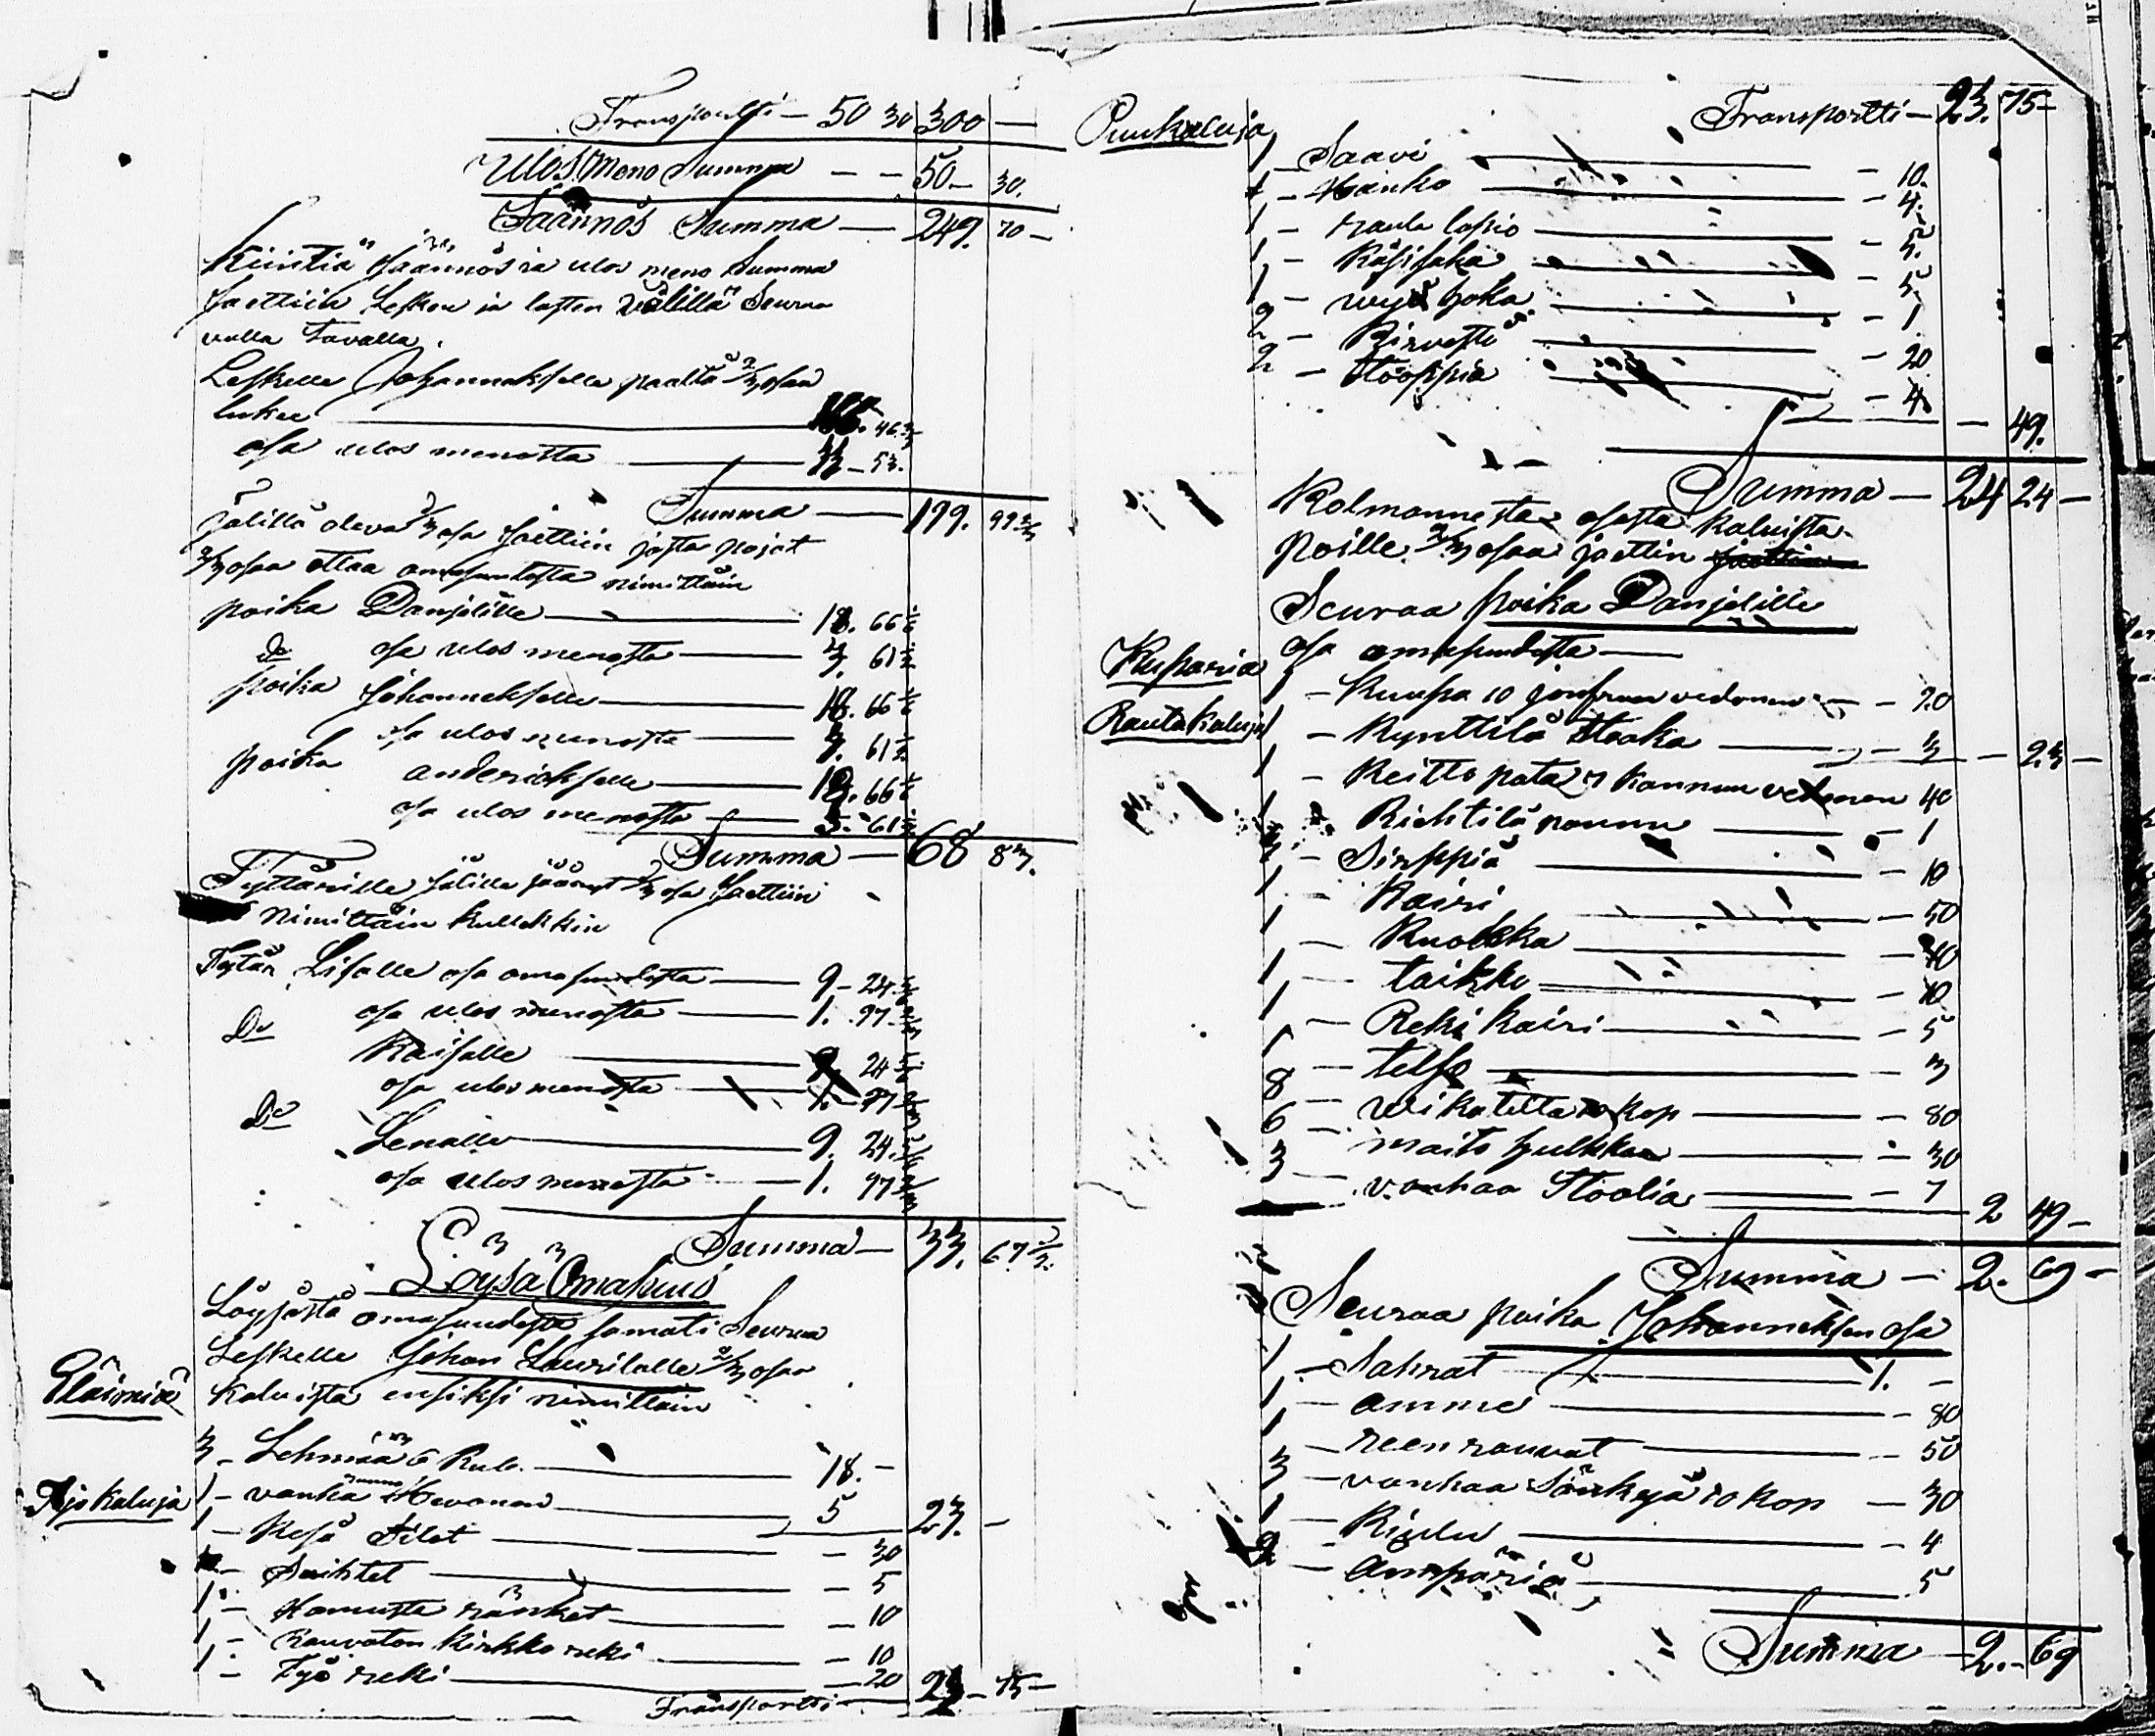 Transportti - 50 30 300 -
Ulos Meno Summa - - 50 - 30.
Säännös Summa - 249. 70 -
Kiintiä säännös ja ulos meno Summa
Jaettiin Lesken ja lasten välillä Seuraa
valla Tavalla.
Leskelle Johannekselle paaltä 2/3 osaa
lukee 166. 46 2/3
osa ulos menosta 33 - 53.
Summa - 199. 99 2/3
jälillä oleva 1/3 osa Jaettiin josta pojat
2/3 osaa ottaa omasuudesta nimittäin
poika Danjelille 18. 66 1/6
Do osa ulos menosta 3. 61 1/2
poika Johannekselle 18. 66 1/6
osa ulos menosta 3. 61 1/2
poika anderiokselle 18. 66 1/6
osa ulos menosta 3. 61 1/2
Summa - 68 83.
Tyttärille jälille jäänyt 1/3 osa Jaettiin
Nimittäin kullekkin
Tytär Lisalle osa omasuudesta 9 - 24
osa ulos menosta 1. 97
Do Kaisalle 9 24
osa ulos menosta 1. 97
Do Lenalle 9. 24.
osa ulos menosta 1. 97
Summa - 33. 67 1/2.
Löysä Omasuus
Löysästä omasuudesta samati Seuraa
Leskelle Johan Laurilalle 2/3 osaa
Eläimiä kaluista ensiksi nimittäin
3 - Lehmää 6 Rub. 18. -
Ajokaluja 1 - vanha ruuna Hevonen 5 23. -
1 - Kesä Tilet - 30
Suihtet - 5
1 - Hamusta ränket - 10
1 - Rauvaton kirkko reki - 10
1 - Työ reki - 20
Transportti 23 - 75 -
Puukaluja Transportti - 23. 75 -
1 - Saavi - 10.
1 - Hanko - 4.
1 - rauta lapio - 5.
1 - Käsisaha - 5
1 - wyö hoka - 1
2 - Kirvestä - 20
2 - Stooppia - 4
- 49.
Summa - 24 24 -
Kolmannesta osasta kaluista
Poille 2/3 osaa jaettin jaettiin
Seuraa poika Danjelille
osa omasuudesta
Kuparia 1 - Kuupa 10 jonfruun vedonen - 20
Rautakaluja 1 - Kynttilä Staaka - 3 - 23 -
1 - Keitto pata 7 kannun vetonen 40
1 - Richtilä pannu - 1
2 - Sirppiä - 10
1 - Kairi - 50
1 - Kuokka - 10
1 - taikko - 10
1 - Reki kairi - 5
1 - telso - 3
8 - wikatetta 10 kop - 80
6 - maito hulkkaa - 30
3 - vanhaa Stoolia - 7
2 49 -
Summa - 2. 69 -
Seuraa poika Johanneksen osa
1 - Sahrat 1. -
1 - amme - 80
1 - reen rauvat - 50
3 - vanhaa Sänkyä 10 kop - 30
1 - Kiulu - 4
2 - ämpäriä 5
Summa - 2. - 69